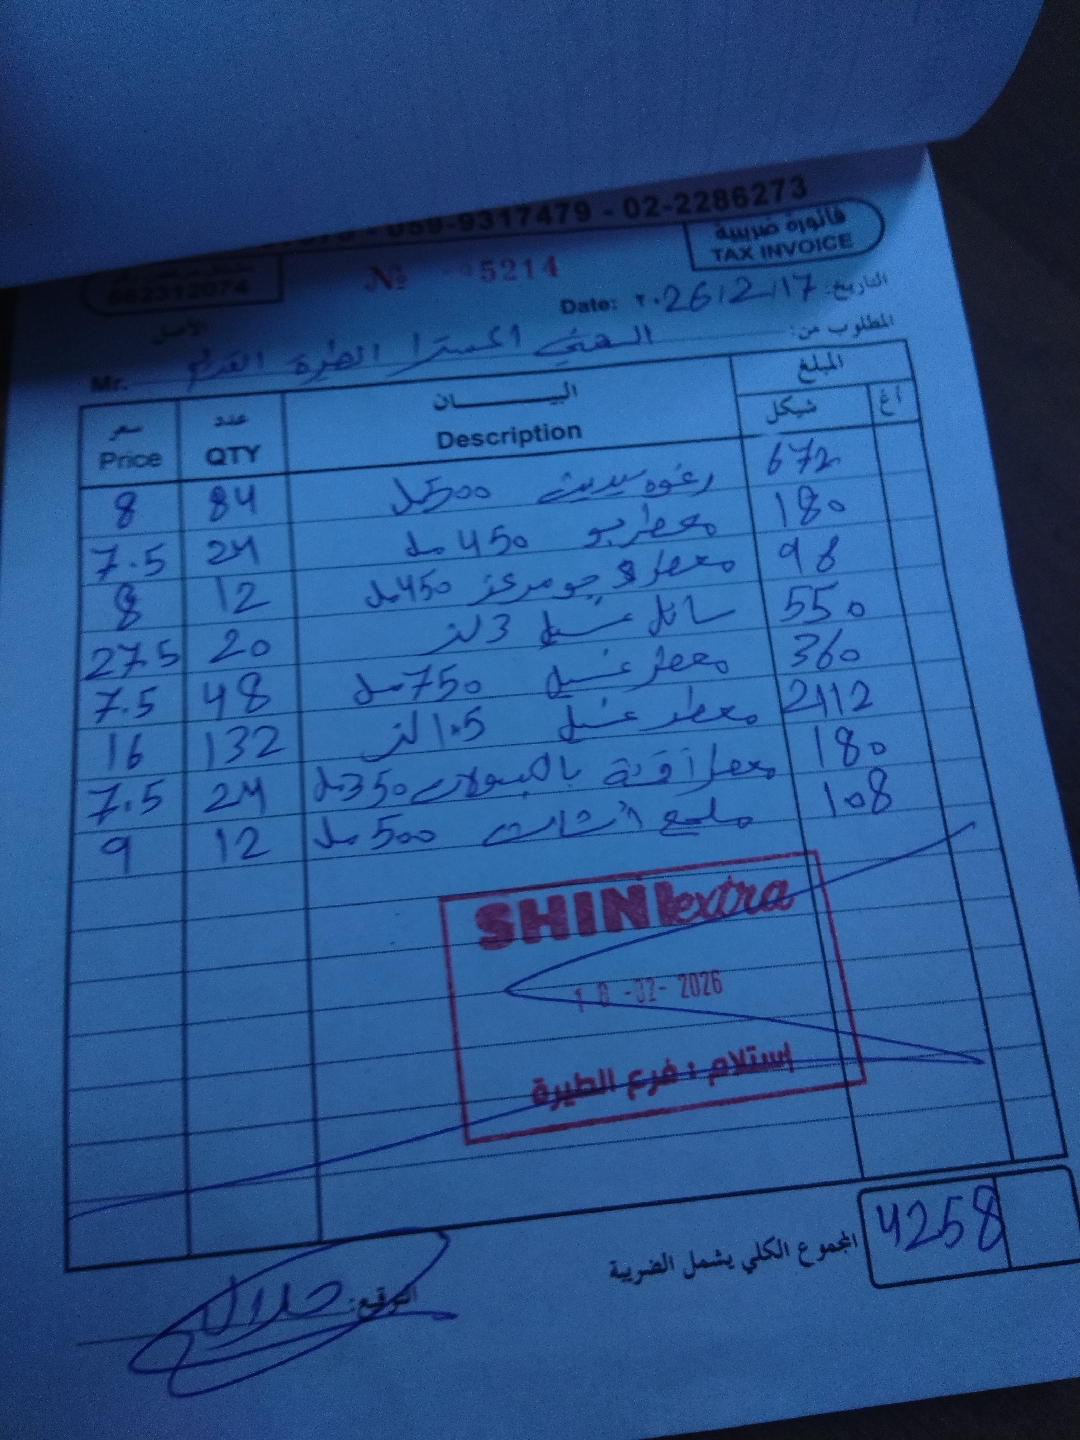 059-9317479 - 02-2286273
فاتورة ضريبية
TAX INVOICE
562312074
№ 5214
التاريخ: Date: ٢٠26/2/17
الأصل
المطلوب من: اكسترا الطيرة Mr.
المبلغ البيـــــــان عدد سعر
شيكل أغ Description QTY Price
672 رغوه 500 مل 84 8
180 معطر بو 450 مل 24 7.5
98 معطر جو مركز 450 مل 12 8
550 سائل غسيل 3 لتر 20 27.5
360 معطر غسيل 750 مل 48 7.5
2112 معطر غسيل 1.5 لتر 132 16
180 معطر 350 مل 24 7.5
108 ملمع اثاث 500 مل 12 9
SHINI extra
-02- 2026
إستلام : فرع الطيرة
المجموع الكلي يشمل الضريبة 4258
التوقيع: